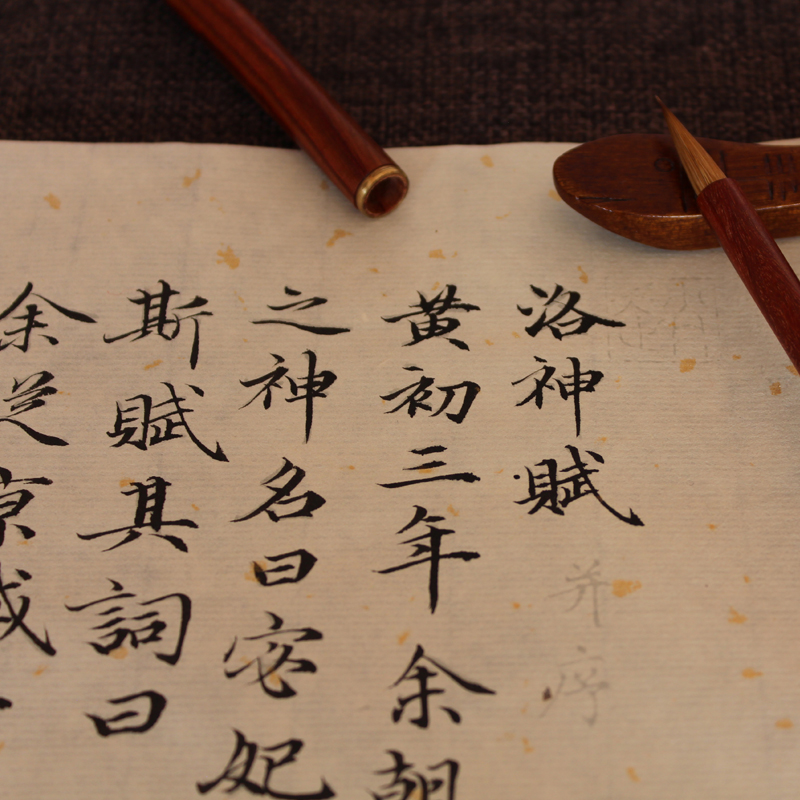 洛神賦 并序
黄初三年余朝
之神名曰宓妃
斯賦其詞曰
余從京域